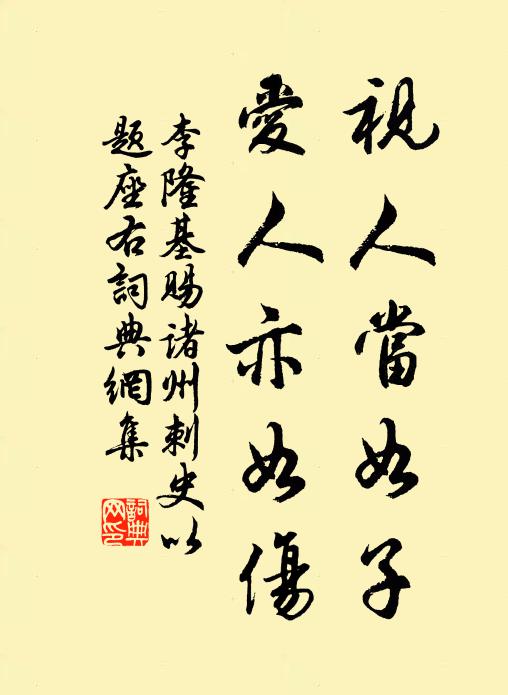 視人當如子
愛人亦如傷
李隆基賜诸州刺史以
题座右詞典網集
詞典
网印